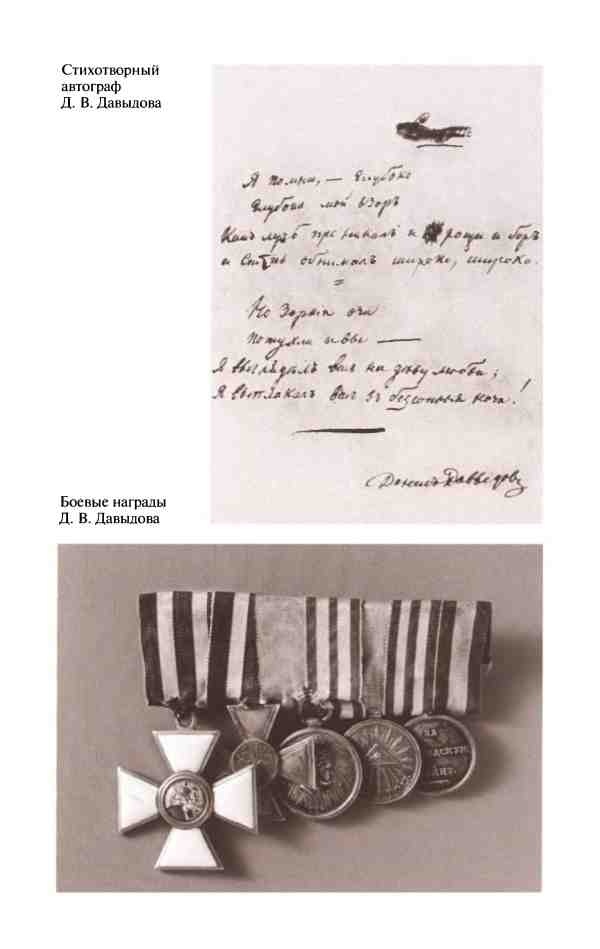 Стихотворный
автограф
Д. В. Давыдова
Я помню, — глубоко
Глубоко мой взоръ
Какъ лучъ проникалъ и рощи и боръ
и степь обнималъ широко, широко.
=
Но зоркія очи
Потухли и вы —
Я выглядѣлъ васъ на дѣву любви;
Я выплакалъ васъ въ безсонныя ночи!
Денисъ Давыдовъ
Боевые награды
Д. В. Давыдова
ЗА